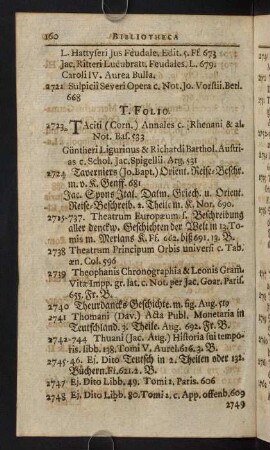 160 BIBLIOTHECA
L. Hattyseri Jus Feudale. Edit. 5. Ff 673
Jac. Ritteri Lucubratt. Feudales. L. 679.
Caroli IV. Aurea Bulla.
2721 Sulpicii Severi Opera c. Not. Jo. Vorstii. Berl.
668
T. FOLIO.
2723. TAciti (Corn.) Annales c. Rhenani & al.
Not. Bas. 533
Güntheri Ligurinus & Richardi Barthol. Austri-
as c. Schol. Jac. Spigellii. Arg. 531
2724 Taverniers (Jo. Bapt.) Orient. Reise-Beschr.
m. v. K. Genff. 681
Jac. Spons Ital. Dalm. Griech. u. Orient.
Reise-Beschreib. 2. Theil m. K. Nor. 690.
2725-737. Theatrum Europæum s. Beschreibung
aller denckw. Geschichten der Welt in 13. To-
mis m. Merians K. Ff. 662. biß 691. 13. B.
2738 Theatrum Principum Orbis universi c. Tab.
æn. Col. 596
2739 Theophanis Chronographia & Leonis Gram.
Vitæ Impp. gr. lat. c. Not. per Jac. Goar. Paris.
655. Fr. B.
2740 Theurdancks Geschichte. m. fig. Aug. 519
2741 Thomani (Dav.) Acta Publ. Monetaria in
Teutschland. 3. Theile. Aug. 692. Fr. B.
2742-744 Thuani (Jac. Aug.) Historia sui tempo-
ris. libb. 138. Tomi V. Aurel. 626. 3. B.
2745-46. Ej. Dito Teutsch in 2. Theilen oder 132.
Büchern. Ff. 621. 2. B.
2747 Ej. Dito Libb. 49. Tomi 1, Paris. 606
2748 Ej. Dito Libb. 80. Tomi 2. c. App. offenb. 609
2749